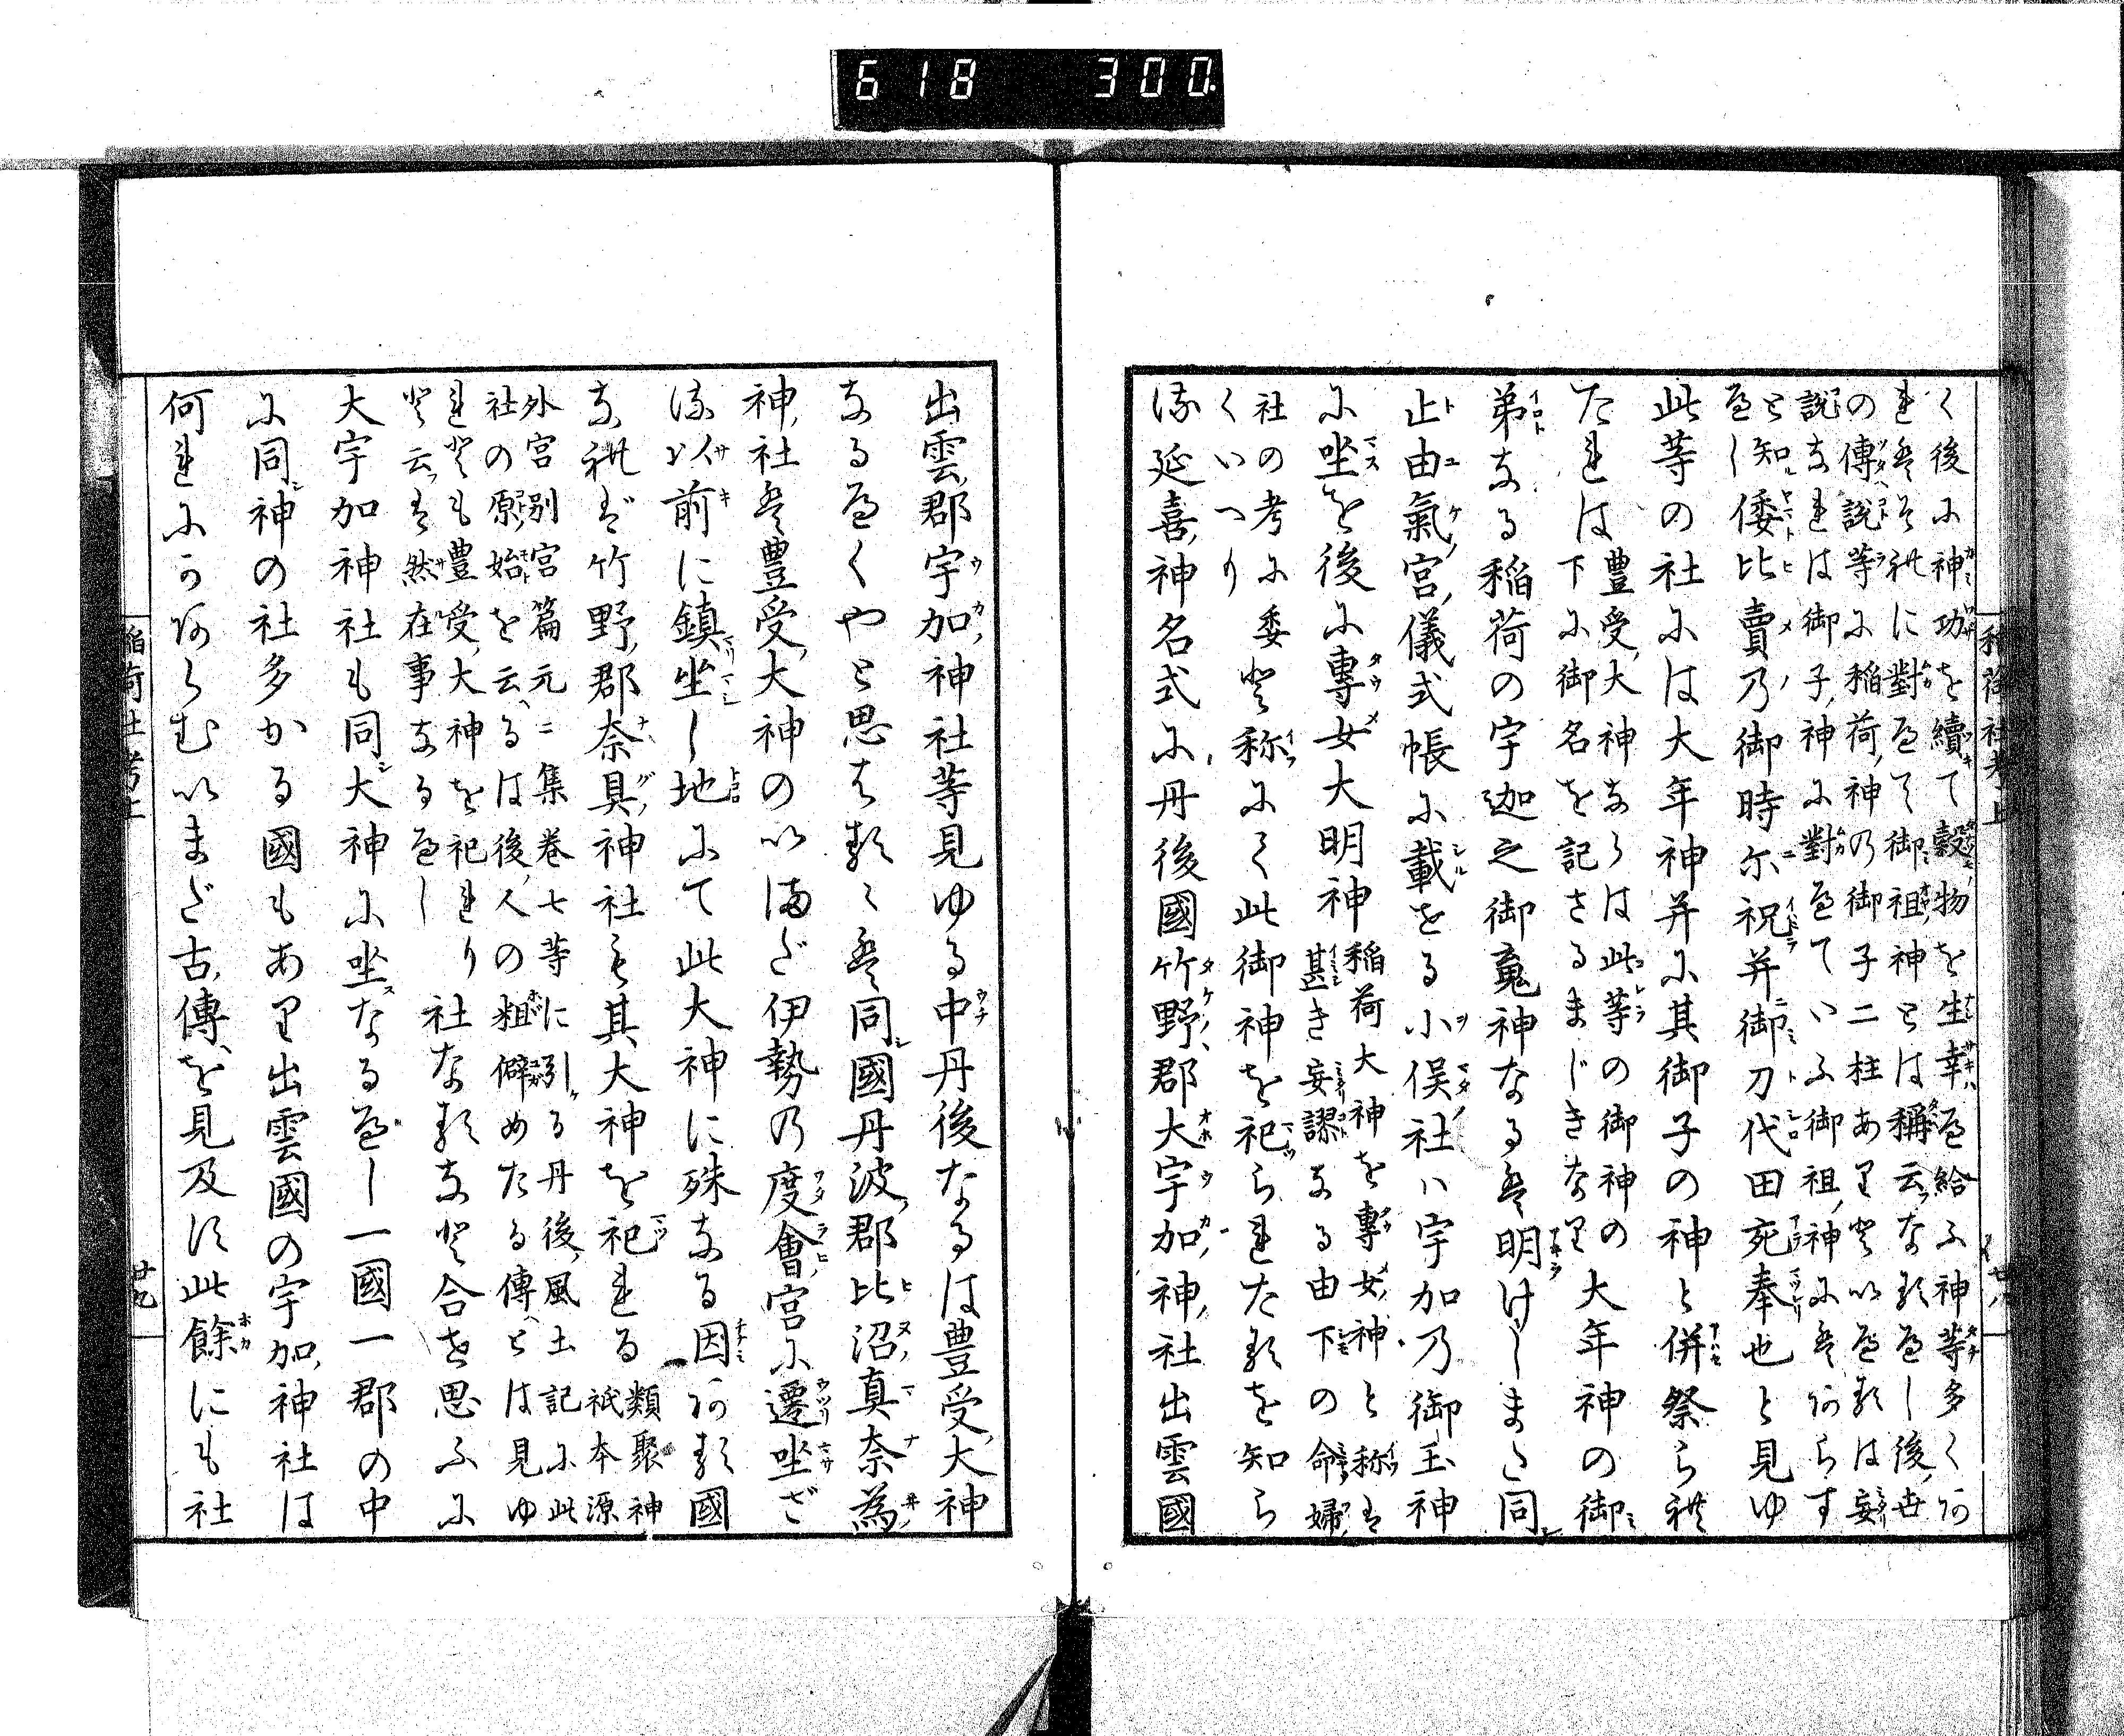 618 300
稲荷社考上
く後に神功を續て穀物を生幸へ給ふ神等多くあ
れとそれに對へて御祖神とは稱云なるへし後世
の傳説等に稲荷神の御子二柱ありと以へるは妄
説なれは御子神に對へていふ御祖神にはあらす
と知
へし倭比賣乃御時尓祝并御刀代田宛奉也と見ゆ
此等の社には大年神并に其御子の神と併祭られ
たれは豊受大神ならは此等の御神の
下に御名を記さるまじきなり大年神の御
弟なる稲荷の宇迦之御魂神なる者明けしまた同
止由氣宮儀式帳に載せる小俣社ハ宇加乃御玉神
に坐を後に專女大明神稲荷大神を專女神と称は
甚き妄謬なる由下の命婦
社の考に委と称にて此御神を祀られたるを知ら
くいへり
る延喜神名式に丹後國竹野郡大宇加神社出雲國
出雲郡宇加神社等見ゆる中丹後なるは豊受大神
なるへくやと思はるゝ者同國丹波郡比沼真奈為
神社者豊受大神のいまだ伊勢の度會宮に遷坐ざ
る以前に鎮坐し地にて此大神に殊なる因ある國
なれば竹野郡奈具神社も其大神を祀れる類聚神
祇本源
外宮別宮篇元二集巻七等に引る丹後風土記に此
社の原始を云るは後人の粗僻めたる傳とは見ゆ
れども豊受大神を祀れり社なるなと合せ思ふに
と云は然在事なるへし
大宇加神社も同大神に坐なるへし一國一郡の中
に同神の社多かる國もあり出雲國の宇加神社は
何れにかあらむいまだ古傳を見及す此餘にも社
稲荷社考上
廿九